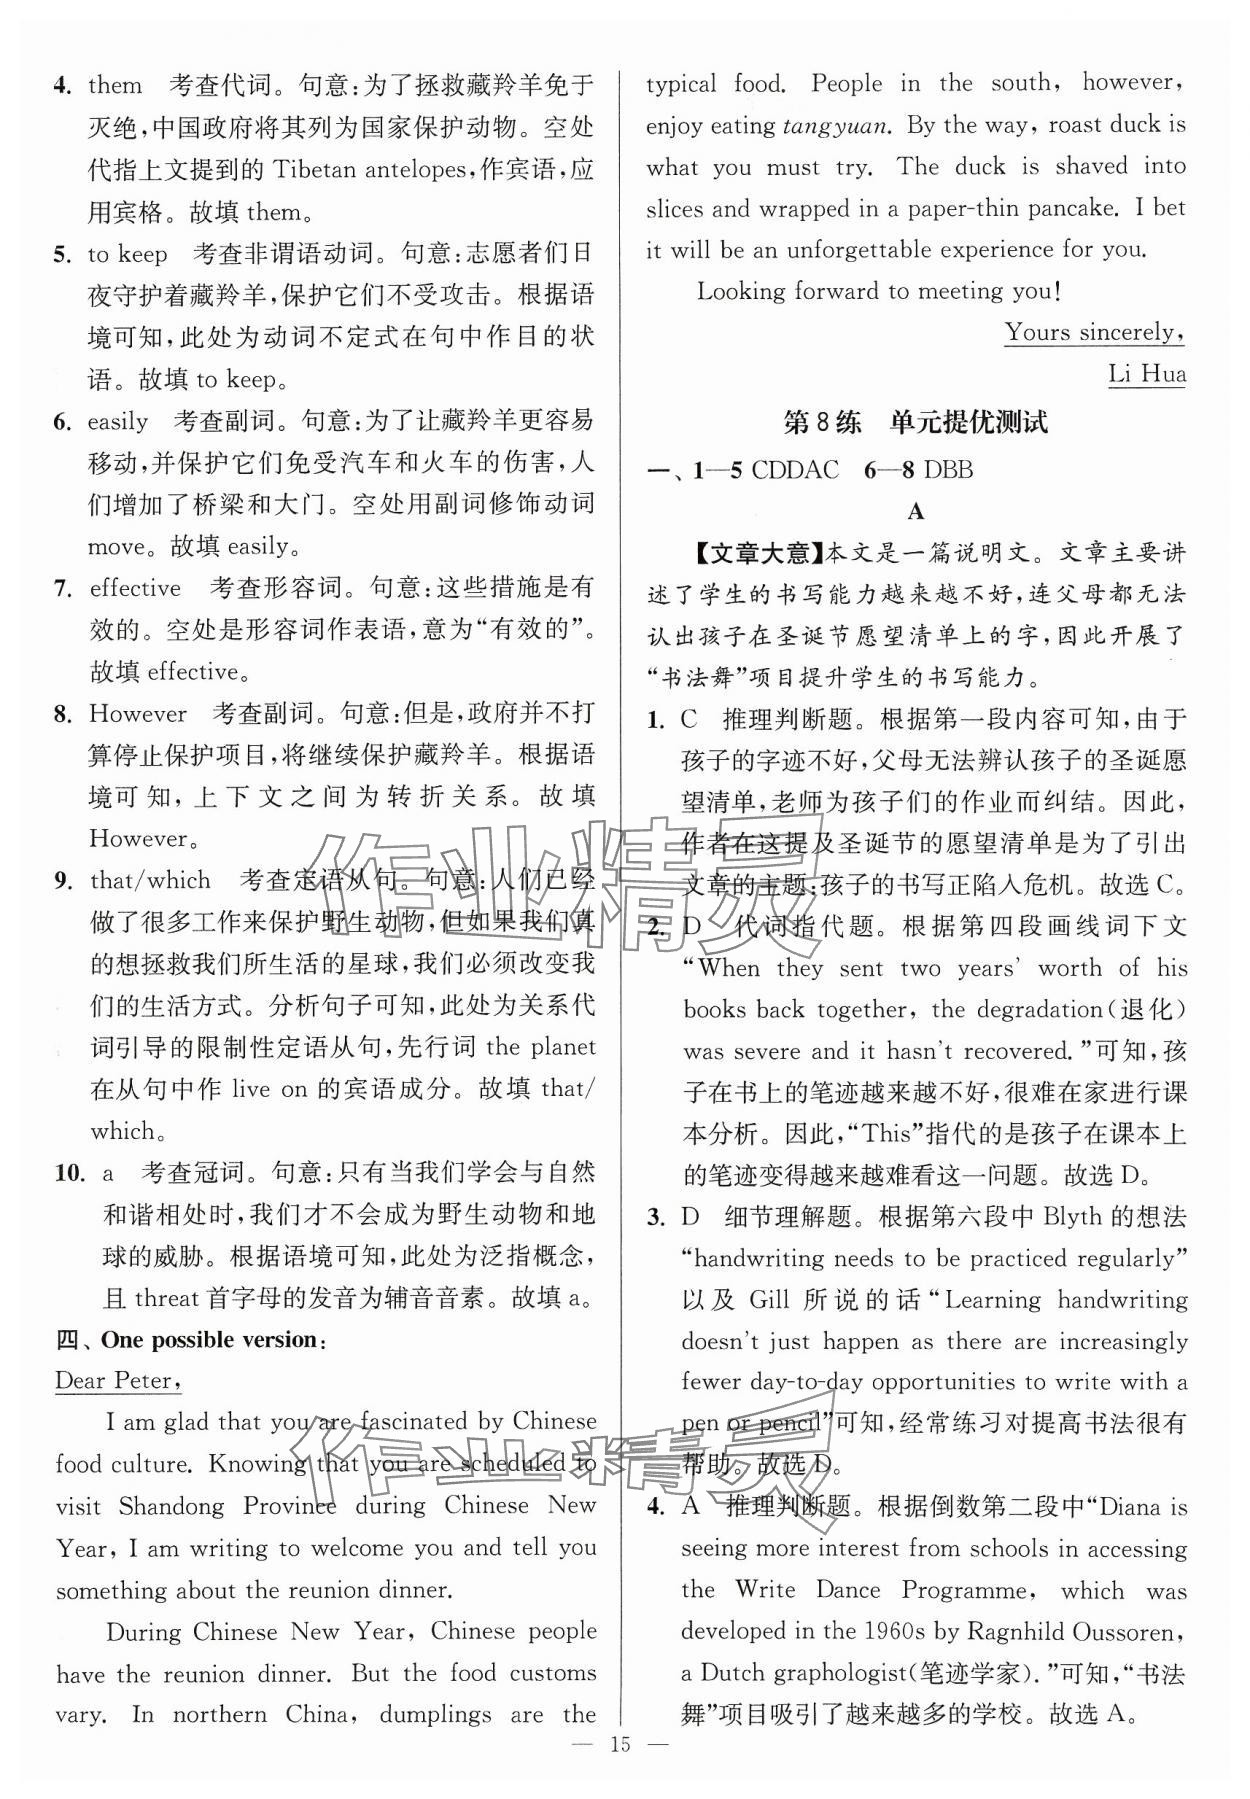 4. them　考查代词。句意:为了拯救藏羚羊免于
灭绝,中国政府将其列为国家保护动物。空处
代指上文提到的 Tibetan antelopes,作宾语,应
用宾格。故填 them。
5. to keep　考查非谓语动词。句意:志愿者们日
夜守护着藏羚羊,保护它们不受攻击。根据语
境可知,此处为动词不定式在句中作目的状
语。故填 to keep。
6. easily　考查副词。句意:为了让藏羚羊更容易
移动,并保护它们免受汽车和火车的伤害,人
们增加了桥梁和大门。空处用副词修饰动词
move。故填 easily。
7. effective　考查形容词。句意:这些措施是有
效的。空处是形容词作表语,意为“有效的”。
故填 effective。
8. However　考查副词。句意:但是,政府并不打
算停止保护项目,将继续保护藏羚羊。根据语
境可知,上下文之间为转折关系。故填
However。
9. that/which　考查定语从句。句意:人们已经
做了很多工作来保护野生动物,但如果我们真
的想拯救我们所生活的星球,我们必须改变我
们的生活方式。分析句子可知,此处为关系代
词引导的限制性定语从句,先行词 the planet
在从句中作 live on 的宾语成分。故填 that/
which。
10. a　考查冠词。句意:只有当我们学会与自然
和谐相处时,我们才不会成为野生动物和地
球的威胁。根据语境可知,此处为泛指概念,
且 threat 首字母的发音为辅音音素。故填 a。
四、One possible version:
Dear Peter,
I am glad that you are fascinated by Chinese
food culture. Knowing that you are scheduled to
visit Shandong Province during Chinese New
Year, I am writing to welcome you and tell you
something about the reunion dinner.
During Chinese New Year, Chinese people
have the reunion dinner. But the food customs
vary. In northern China, dumplings are the
typical food. People in the south, however,
enjoy eating tangyuan. By the way, roast duck is
what you must try. The duck is shaved into
slices and wrapped in a paper-thin pancake. I bet
it will be an unforgettable experience for you.
Looking forward to meeting you!
Yours sincerely,
Li Hua
第 8 练　单元提优测试
一、1—5 CDDAC　6—8 DBB
A
【文章大意】本文是一篇说明文。文章主要讲
述了学生的书写能力越来越不好,连父母都无法
认出孩子在圣诞节愿望清单上的字,因此开展了
“书法舞”项目提升学生的书写能力。
1. C　推理判断题。根据第一段内容可知,由于
孩子的字迹不好,父母无法辨认孩子的圣诞愿
望清单,老师为孩子们的作业而纠结。因此,
作者在这提及圣诞节的愿望清单是为了引出
文章的主题:孩子的书写正陷入危机。故选 C。
2. D　代词指代题。根据第四段画线词下文
“When they sent two years’ worth of his
books back together, the degradation(退化)
was severe and it hasn’t recovered.”可知,孩
子在书上的笔迹越来越不好,很难在家进行课
本分析。因此,“This”指代的是孩子在课本上
的笔迹变得越来越难看这一问题。故选 D。
3. D　细节理解题。根据第六段中 Blyth 的想法
“handwriting needs to be practiced regularly”
以及 Gill 所说的话“Learning handwriting
doesn’t just happen as there are increasingly
fewer day-to-day opportunities to write with a
pen or pencil”可知,经常练习对提高书法很有
帮助。故选 D。
4. A　推理判断题。根据倒数第二段中“Diana is
seeing more interest from schools in accessing
the Write Dance Programme, which was
developed in the 1960s by Ragnhild Oussoren,
a Dutch graphologist(笔迹学家).”可知,“书法
舞”项目吸引了越来越多的学校。故选 A。
— 15 —
作业精灵
作业精灵